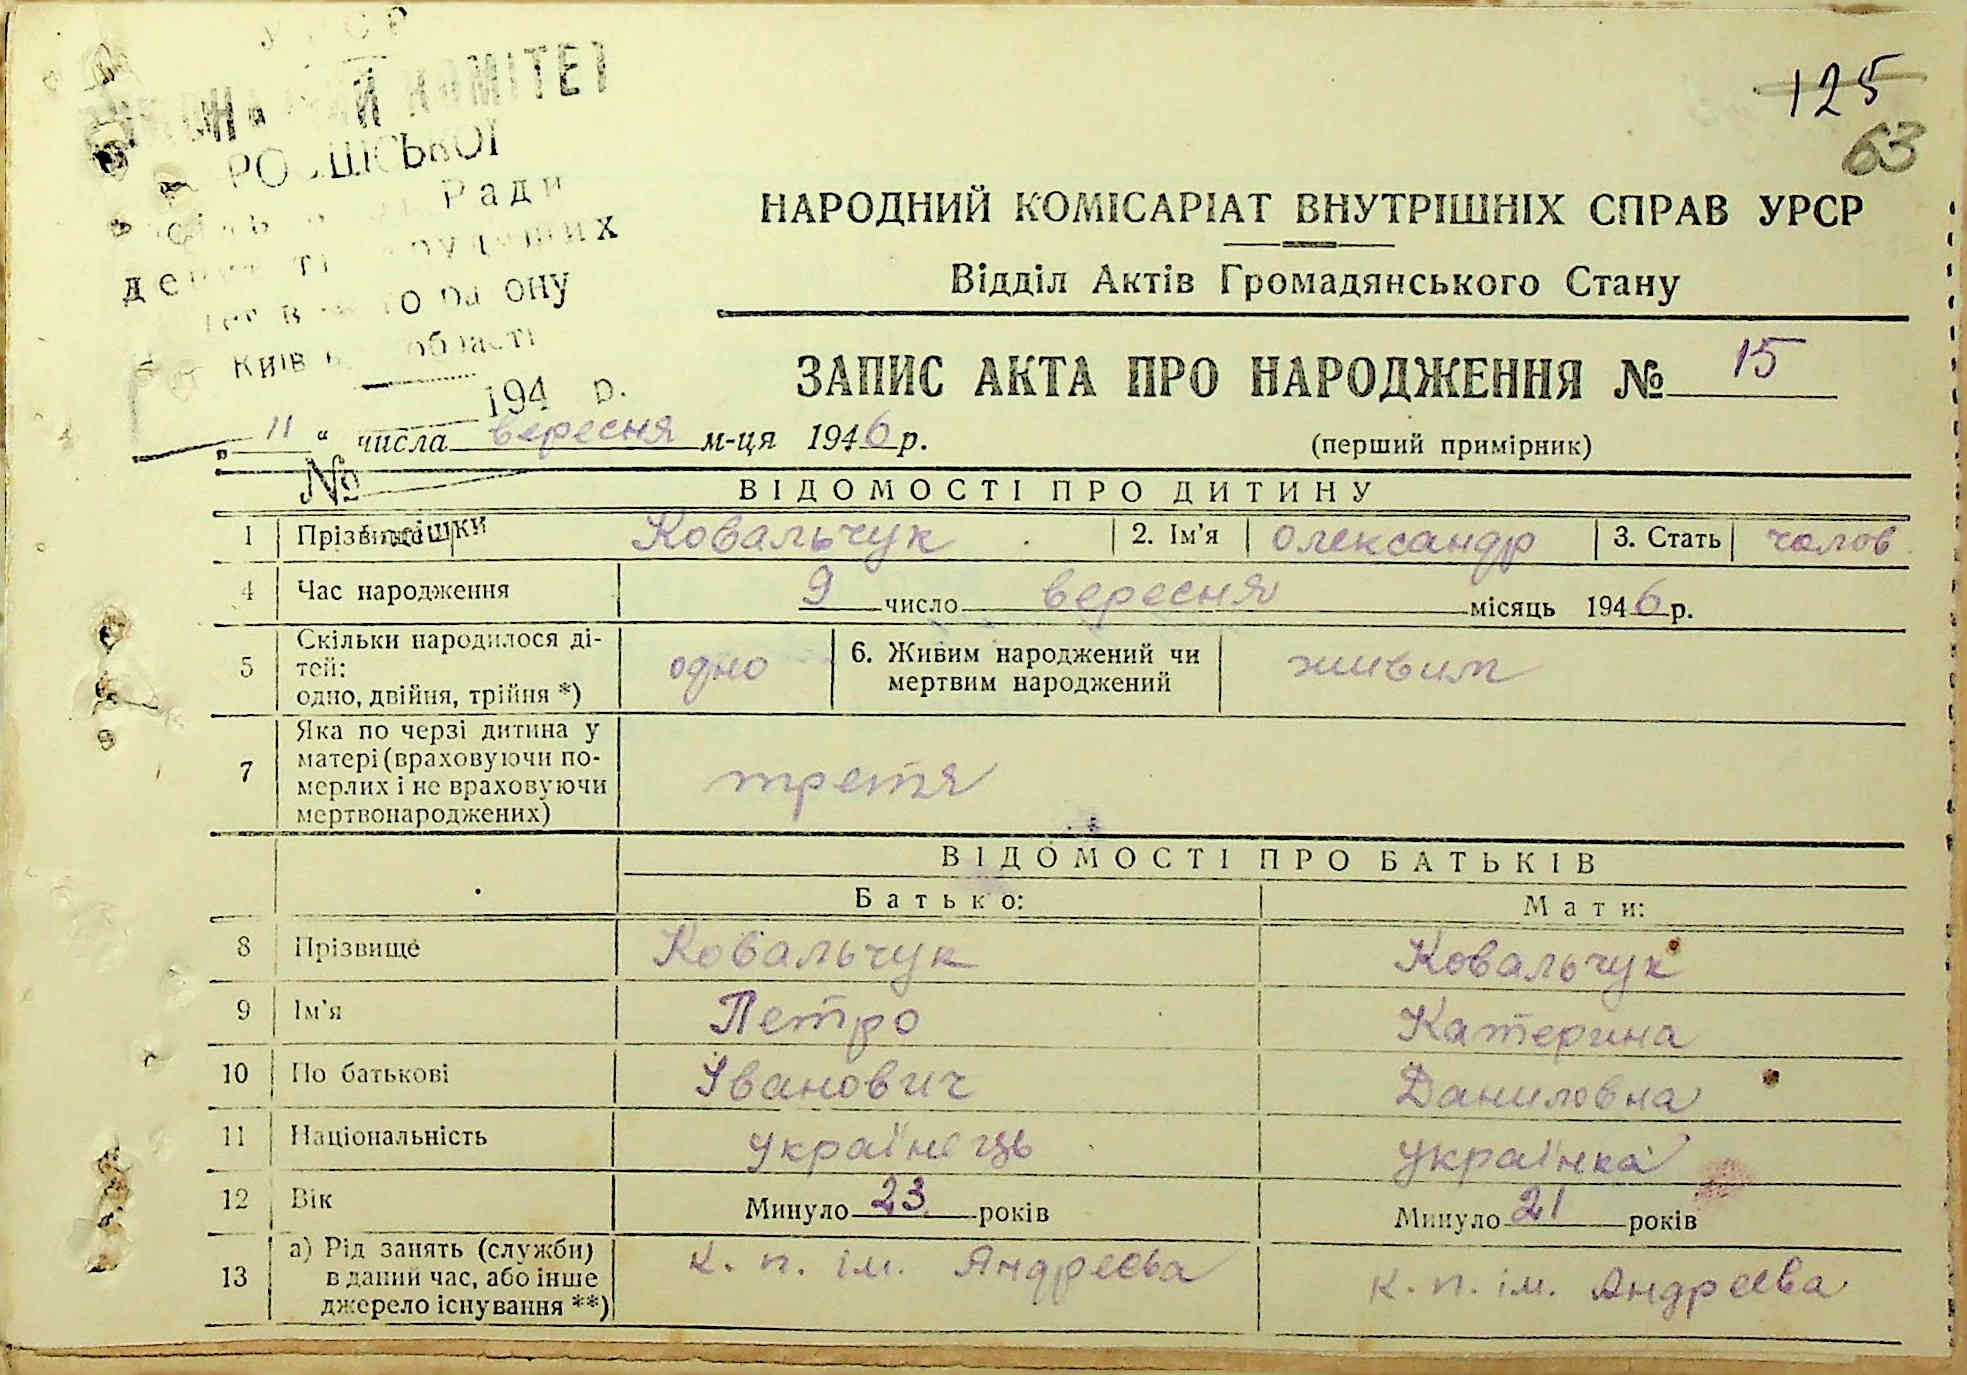 125
63
КОМІТЕТ
Ради
області
194 р.
№
НАРОДНИЙ КОМІСАРІАТ ВНУТРІШНІХ СПРАВ УРСР
Відділ Актів Громадянського Стану
ЗАПИС АКТА ПРО НАРОДЖЕННЯ № 15
„ 11 “ числа вересня м-ця 1946 р.
(перший примірник)
ВІДОМОСТІ ПРО ДИТИНУ
1 Прізвище Ковальчук 2. Ім'я Олександр 3. Стать чолов
4 Час народження 9 число вересня місяць 1946 р.
5 Скільки народилося ді-
тей:
одно, двійня, трійня *) одно
6. Живим народжений чи
мертвим народжений живим
7 Яка по черзі дитина у
матері (враховуючи по-
мерлих і не враховуючи
мертвонароджених) третя
ВІДОМОСТІ ПРО БАТЬКІВ
Батько: Мати:
8 Прізвище Ковальчук Ковальчук
9 Ім'я Петро Катерина
10 По батькові Іванович Даниловна
11 Національність українець українка
12 Вік Минуло 23 років Минуло 21 років
13 а) Рід занять (служби)
в даний час, або інше
джерело існування **) к. п. ім. Андреєва к. п. ім. Андреєва